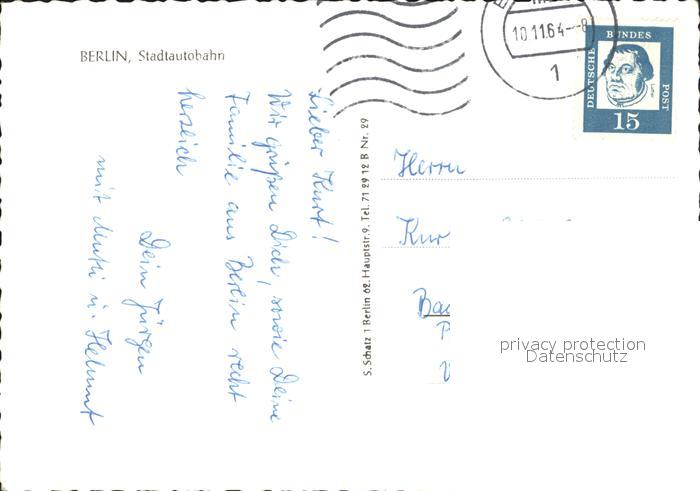 BERLIN, Stadtautobahn
Lieber Kurt!
Wir grüßen Dich, sowie Deine
Familie aus Berlin recht
herzlich
Dein Jürgen
mit Mutti u. Helmut
S. Schatz 1 Berlin 62. Hauptstr. 9. Tel. 71 29 12 B Nr. 29
10.11.64--8
1
DEUTSCHE
BUNDES
POST
15
Herrn
Kur
Ba
P
V
privacy protection
Datenschutz